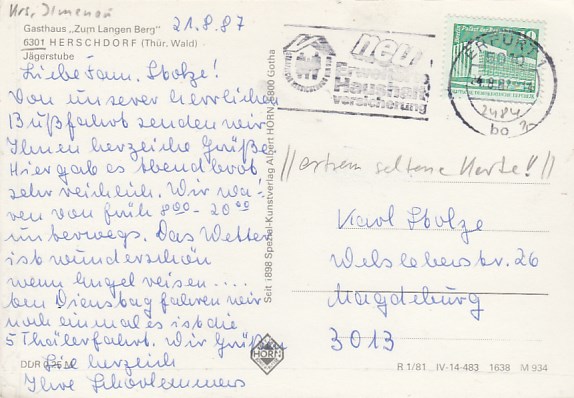 Krs. Ilmenau
Gasthaus „Zum Langen Berg"
6301 HERSCHDORF (Thür. Wald)
Jägerstube
21.8.87
Liebe Fam. Stolze!
Von unserer herrlichen
Bußfahrt senden wir
Ihnen herzeiche Grüße
Hier gab es Abendbrot
sehr reichlich. Wir wa-
ren von früh 8 00 - 20 00
unterwegs. Das Wetter
ist wunderschön
wenn Engel reisen....
Am Dienstag fahren wir
noch einmal es ist die
5 Thälerfahrt. Wir Grüßen
Sie herzeich
Ihre Schorlemmers
DDR 0,25 M
Seit 1898 Spezial-Kunstverlag Albert HORN, 5800 Gotha
HORN
neu
Erweiterte
Haushalt-
versicherung
ERFURT 1
5010
bo
//extrem seltene Karte!!//
Karl Stolze
Welslebenstr. 26
Magdeburg
3013
R 1/81 IV-14-483 1638 M 934